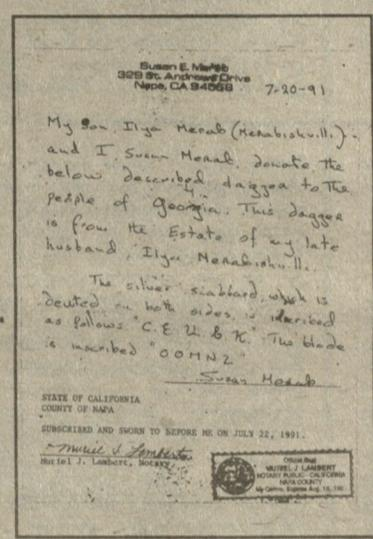 Susan E. Merab
329 St. Andrews Drive
Napa, CA 94558
7-20-91
My Son, Ilya Merab (Merabishvilli)
and I Susan Merab, donate the
below described dagger to the
people of Georgia. This dagger
is from the Estate of my late
husband, Ilya Merabishvilli.
The silver scabbard, which is
dented on both sides, is inscribed
as follows "C. E. U. & K." The blade
is inscribed "OOMN2"
Susan Merab
STATE OF CALIFORNIA
COUNTY OF NAPA
SUBSCRIBED AND SWORN TO BEFORE ME ON JULY 22, 1991.
Muriel J. Lambert
Muriel J. Lambert, Notary
Official Seal
MURIEL J. LAMBERT
NOTARY PUBLIC - CALIFORNIA
NAPA COUNTY
My Comm. Expires Aug.